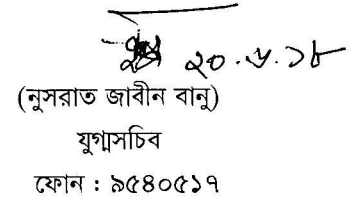 ২০.৬.১৮
(নুসরাত জাবীন বানু)
যুগ্মসচিব
ফোন : ৯৫৪০৫১৭